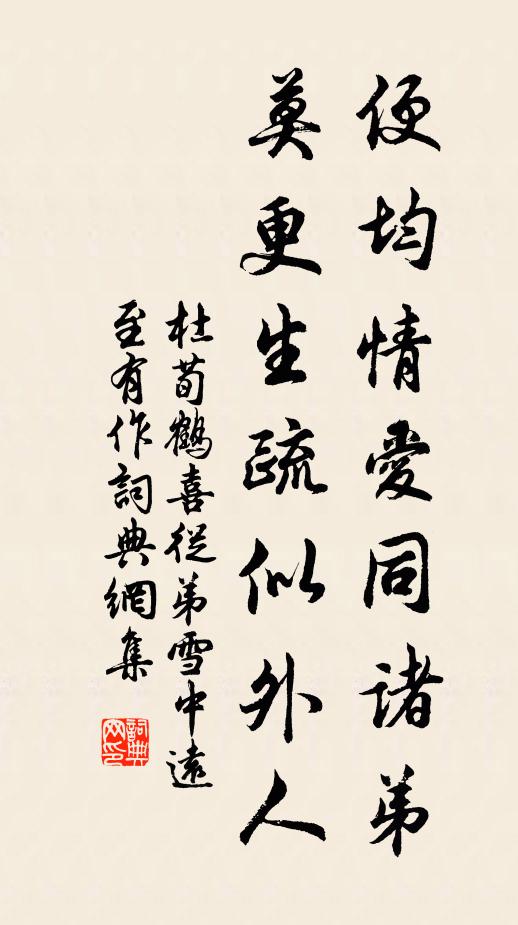 便均情愛同諸弟
莫更生疏似外人
杜荀鶴喜從弟雪中遠
至有作詞典網集
詞典
网印